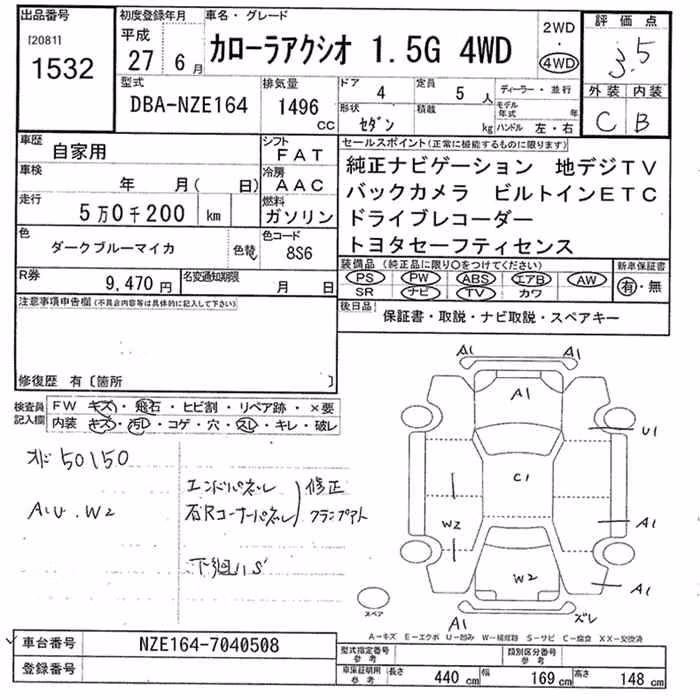 出品番号
[2081]
1532
初度登録年月
平成
27年 6月
車名・グレード
カローラアクシオ 1.5G 4WD
2WD
・
4WD
評価点
3.5
外装 内装
C B
型式
DBA-NZE164
排気量
1496
CC
ドア 4
定員 5人
形状 セダン
積載 kg
ディーラー・並行
モデル年式 年
ハンドル 左・右
車歴
自家用
シフト
FAT
車検
年 月( 日)
冷房
AAC
走行
5万0千200 km
燃料
ガソリン
色
ダークブルーマイカ
色替
色コード
8S6
R券
9,470円
名変通知期限
月 日
セールスポイント(正常に機能するものに限ります)
純正ナビゲーション 地デジTV
バックカメラ ビルトインETC
ドライブレコーダー
トヨタセーフティセンス
装備品(純正品に限り○をつけてください)
PS PW ABS エアB AW
SR ナビ TV カワ
新車保証書
有・無
後日品
保証書・取説・ナビ取説・スペアキー
注意事項申告欄(不具合内容等は具体的に記入して下さい)
修復歴 有〔箇所 〕
検査員記入欄
FW キズ・飛石・ヒビ割・リペア跡・×要
内装 キズ・汚レ・コゲ・穴・スレ・キレ・破レ
オド 50150
AU.W2
エンドパネル
右Rコーナーパネル
修正
下廻りS
A1 A1
A1
U1
C1
W2
A1
W2
A1
A1
ズレ
スペア
A−キズ E−エクボ U−凹み W−補修跡 S−サビ C−腐食 XX−交換済
車台番号
NZE164-7040508
登録番号
型式指定番号
参考
類別区分番号
参考
車庫証明用
参考
長さ 440cm
幅 169cm
高さ 148cm